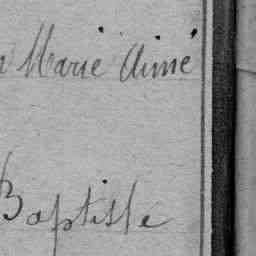 Marie Aimé
Baptiste